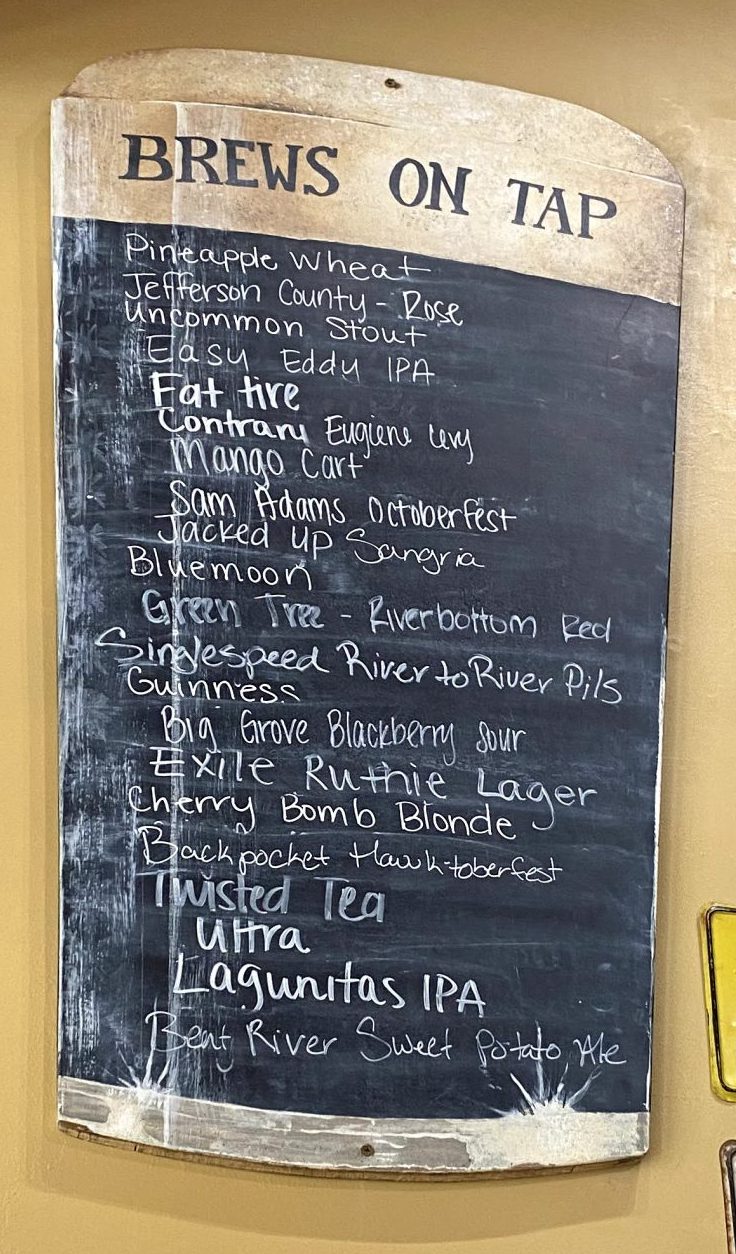 BREWS ON TAP
Pineapple Wheat
Jefferson County - Rose
Uncommon Stout
Easy Eddy IPA
Fat tire
Contrary Eugiene Levy
Mango Cart
Sam Adams Octoberfest
Jacked Up Sangria
Bluemoon
Green Tree - Riverbottom Red
Singlespeed River to River Pils
Guinness
Big Grove Blackberry Sour
Exile Ruthie Lager
Cherry Bomb Blonde
Backpocket Hawktoberfest
Twisted Tea
Ultra
Lagunitas IPA
Bent River Sweet Potato Ale